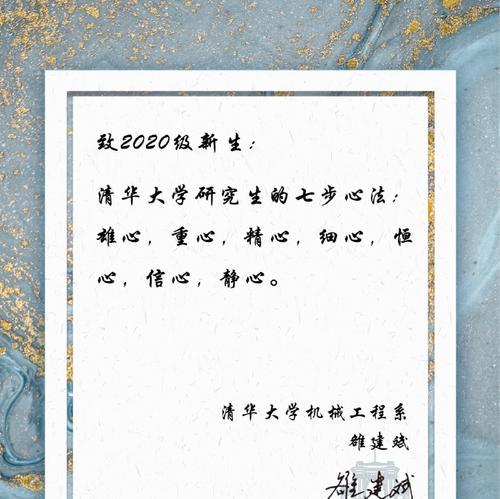 致2020级新生：
清华大学研究生的七步心法：
雄心，重心，精心，细心，恒
心，信心，静心。
清华大学机械工程系
雒建斌
雒建斌